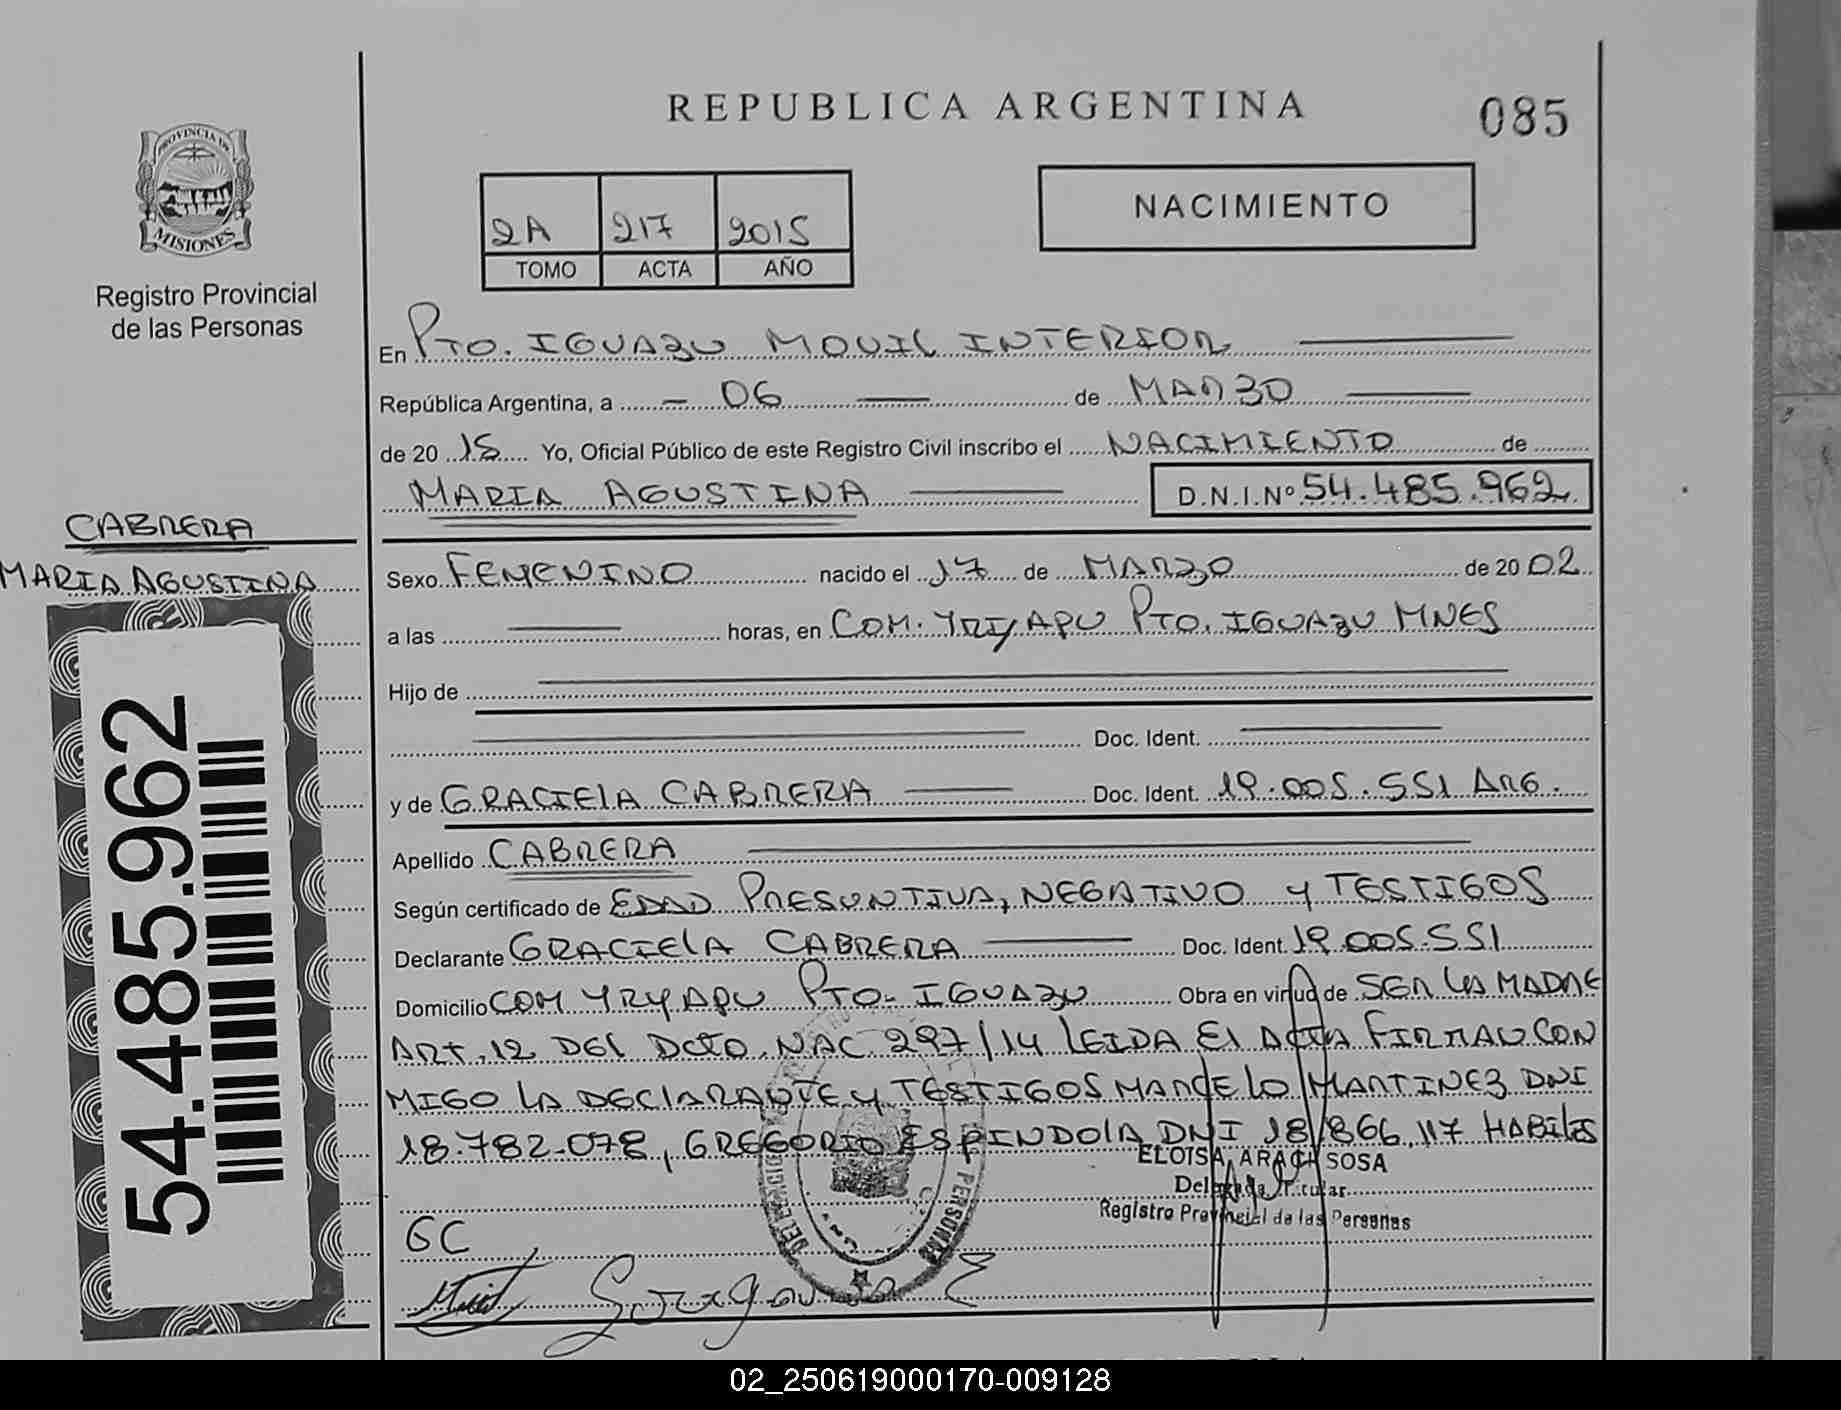 REPUBLICA ARGENTINA
085
PROVINCIA DE
MISIONES
Registro Provincial
de las Personas
2A 217 2015
TOMO ACTA AÑO
NACIMIENTO
En PTO. IGUAZU MOVIL INTERIOR
República Argentina, a 06 de MARZO
de 20 15 Yo, Oficial Público de este Registro Civil inscribo el NACIMIENTO de
MARIA AGUSTINA D.N.I.Nº 54.485.962
CABRERA
MARIA AGUSTINA
54.485.962
Sexo FEMENINO nacido el 17 de MARZO de 20 02
a las horas, en COM. YRYAPU PTO. IGUAZU MNES
Hijo de
Doc. Ident.
y de GRACIElA CABRERA Doc. Ident. 19.005.551 ARG.
Apellido CABRERA
Según certificado de EDAD PRESUNTIVA, NEGATIVO Y TESTIGOS
Declarante GRACIElA CABRERA Doc. Ident. 19.005.551
Domicilio COM YRYAPU PTO. IGUAZU Obra en virtud de SER LA MADRE
ART. 12 DEl DCTO. NAC 297/14 LEIDA El ACTA FIRMAN CON
MIGO LA DEClARANTE Y TESTIGOS MARCELO MARTINEZ DNI
18.782.078, GREGORIO ESPINDOlA DNI 18.866.117 HABILES
ELOISA ARACI SOSA
Delegada Titular
Registro Provincial de las Personas
GC
PERSONAS
02_250619000170-009128